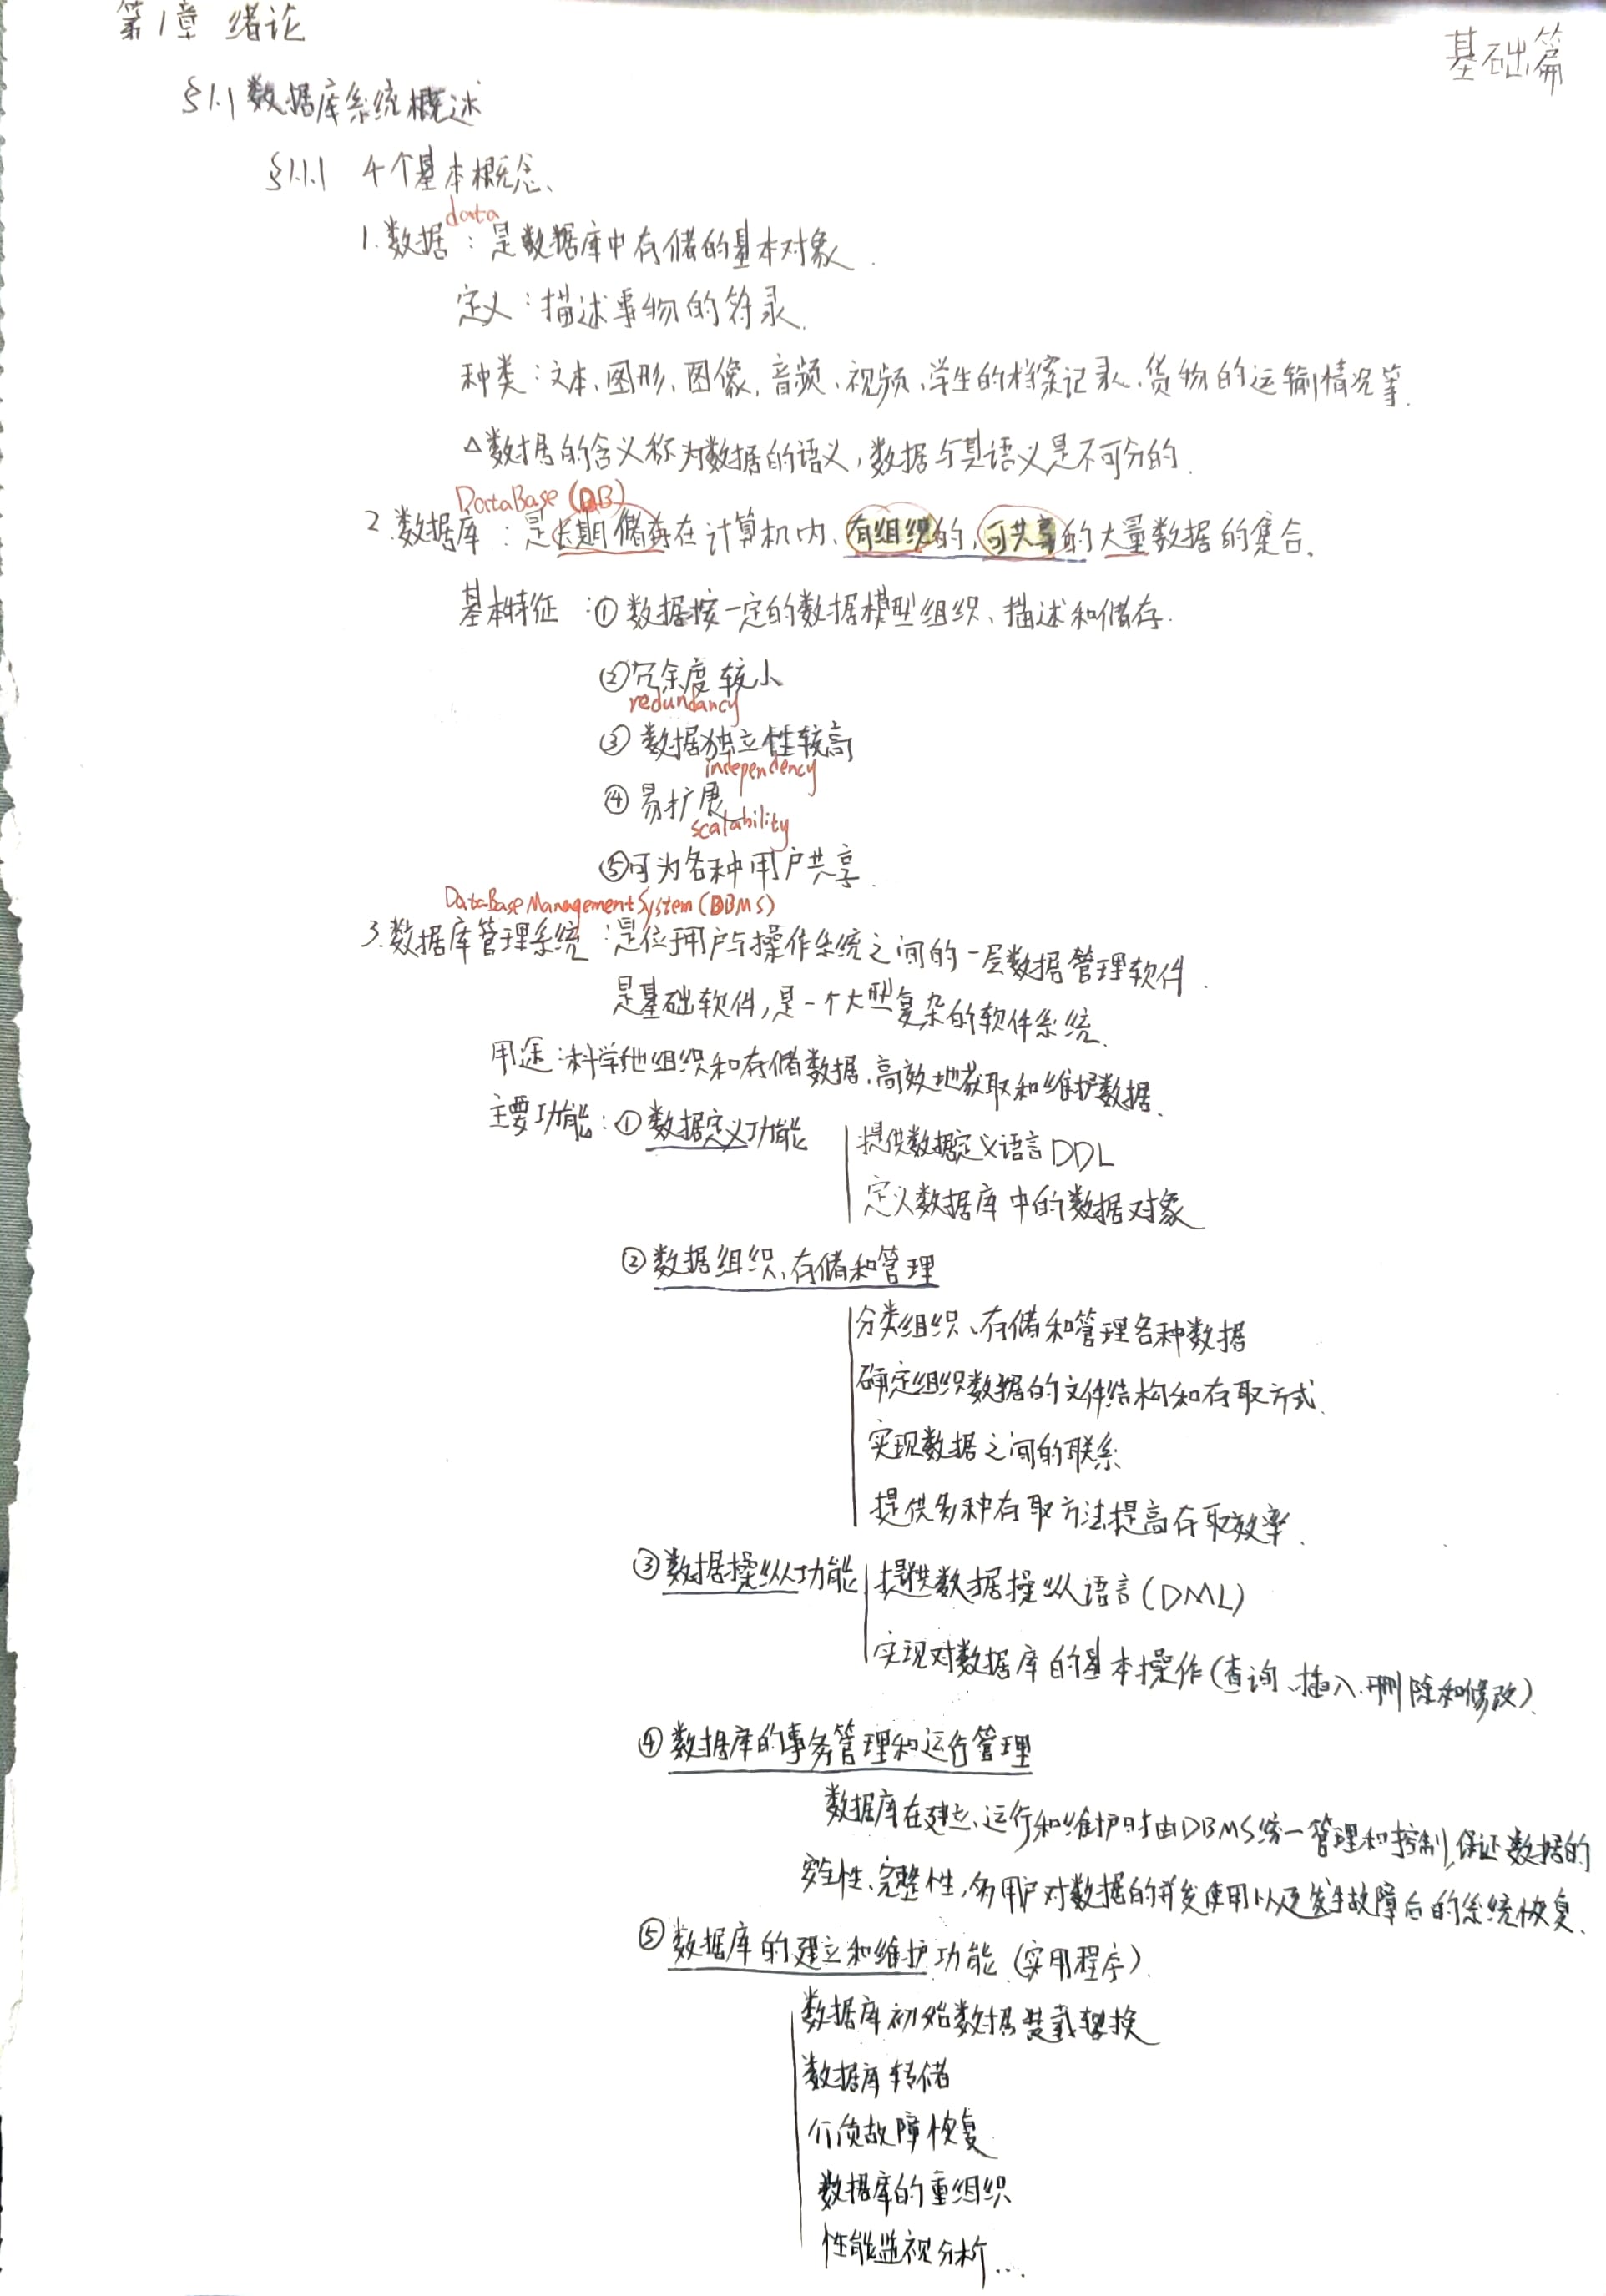 第1章 绪论
基础篇
§1.1 数据库系统概述
§1.1.1 4个基本概念、
data
1.数据：是数据库中存储的基本对象.
定义：描述事物的符录.
种类：文本、图形、图像,音频、视频、学生的档案记录、货物的运输情况等.
△数据的含义称为数据的语义,数据与其语义是不可分的.
DataBase(DB)
2.数据库：是长期储存在计算机内、有组织的,可共享的大量数据的集合.
基本特征：①数据按一定的数据模型组织、描述和储存.
②冗余度较小
redundancy
③数据独立性较高
independency
④易扩展
scalability
⑤可为各种用户共享.
DataBase Management System(DBMS)
3.数据库管理系统：是位于用户与操作系统之间的一层数据管理软件.
是基础软件,是一个大型复杂的软件系统.
用途：科学地组织和存储数据、高效地获取和维护数据.
主要功能：①数据定义功能
提供数据定义语言DDL
定义数据库中的数据对象
②数据组织、存储和管理
分类组织、存储和管理各种数据
确定组织数据的文件结构和存取方式.
实现数据之间的联系
提供多种存取方法提高存取效率.
③数据操纵功能
提供数据操纵语言(DML)
实现对数据库的基本操作(查询、插入、删除和修改).
④数据库的事务管理和运行管理
数据库在建立、运行和维护时由DBMS统一管理和控制,保证数据的
安全性、完整性,多用户对数据的并发使用以及发生故障后的系统恢复.
⑤数据库的建立和维护功能(实用程序).
数据库初始数据装载转换
数据库转储
介质故障恢复
数据库的重组织
性能监视分析...